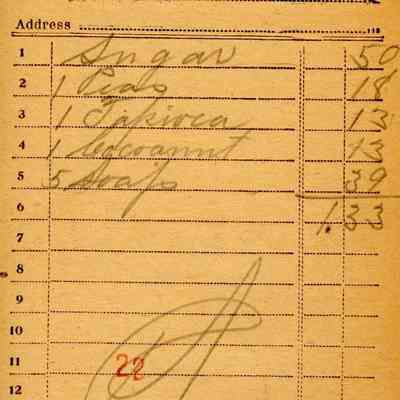 Address
1 Sugar 50
2 1 Peas 18
3 1 Tapioca 13
4 1 Cocoanut 13
5 5 Soap 39
6 1.33
7
8
9
10
11 22
12